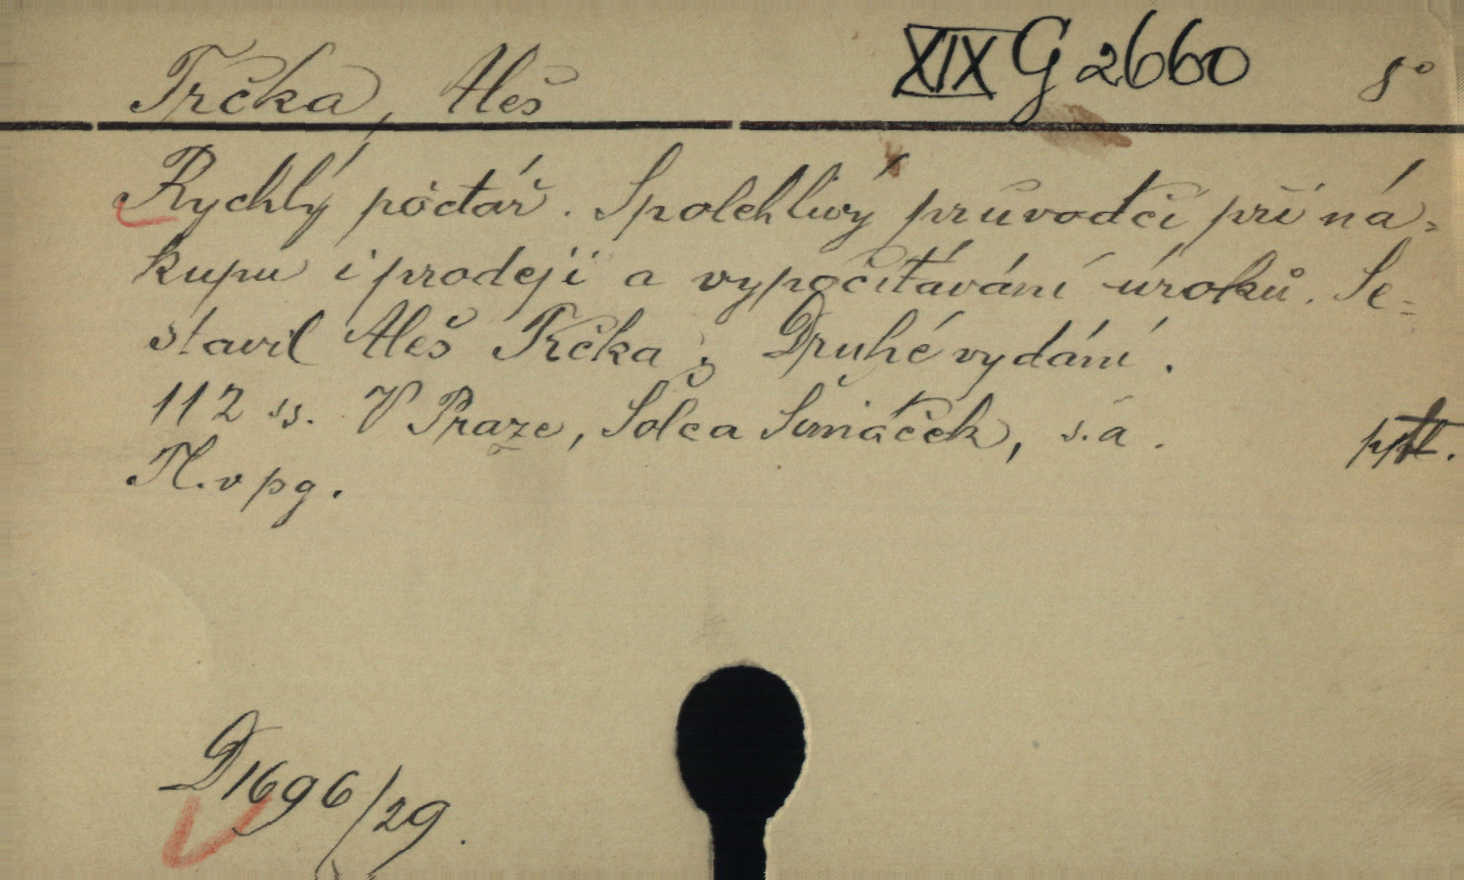 Trčka, Aleš XIX G 2660 8°
Rychlý počtář. Spolehlivý průvodčí při ná-
kupu i prodeji a vypočítávání úroků. Se-
stavil Aleš Trčka. Druhé vydání.
112 ss. V Praze, Šolc a Šimáček, s. a.
Tl. v pg.
D 1696/29.